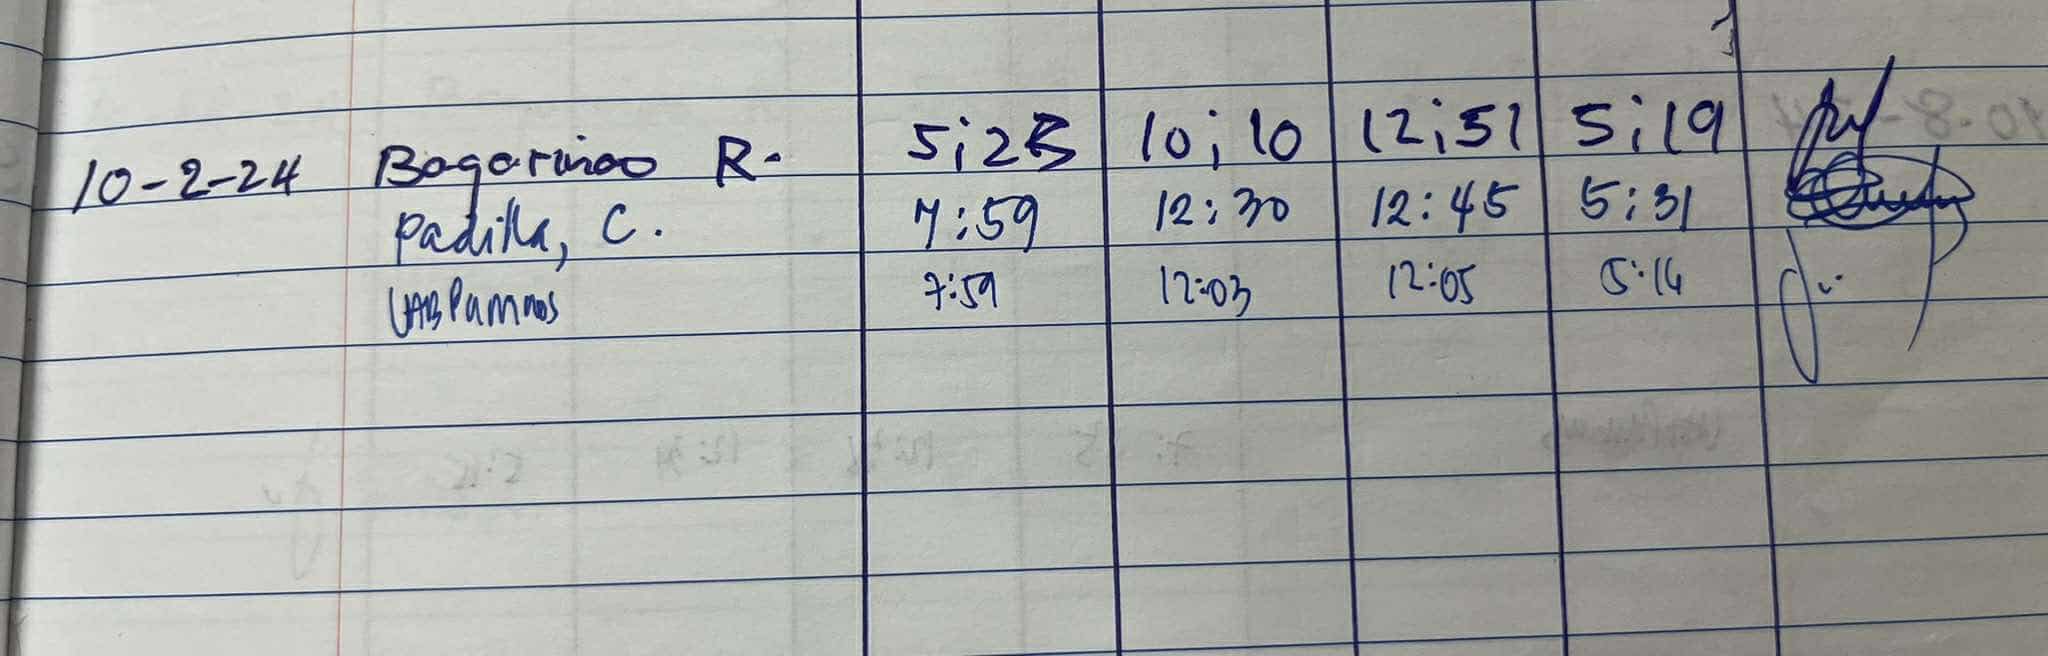 10-2-24 Bagarinao R. 5;25 10;10 12;51 5;19
Padilla, C. 7:59 12:30 12:45 5:31
7:59 12:03 12:05 5:14